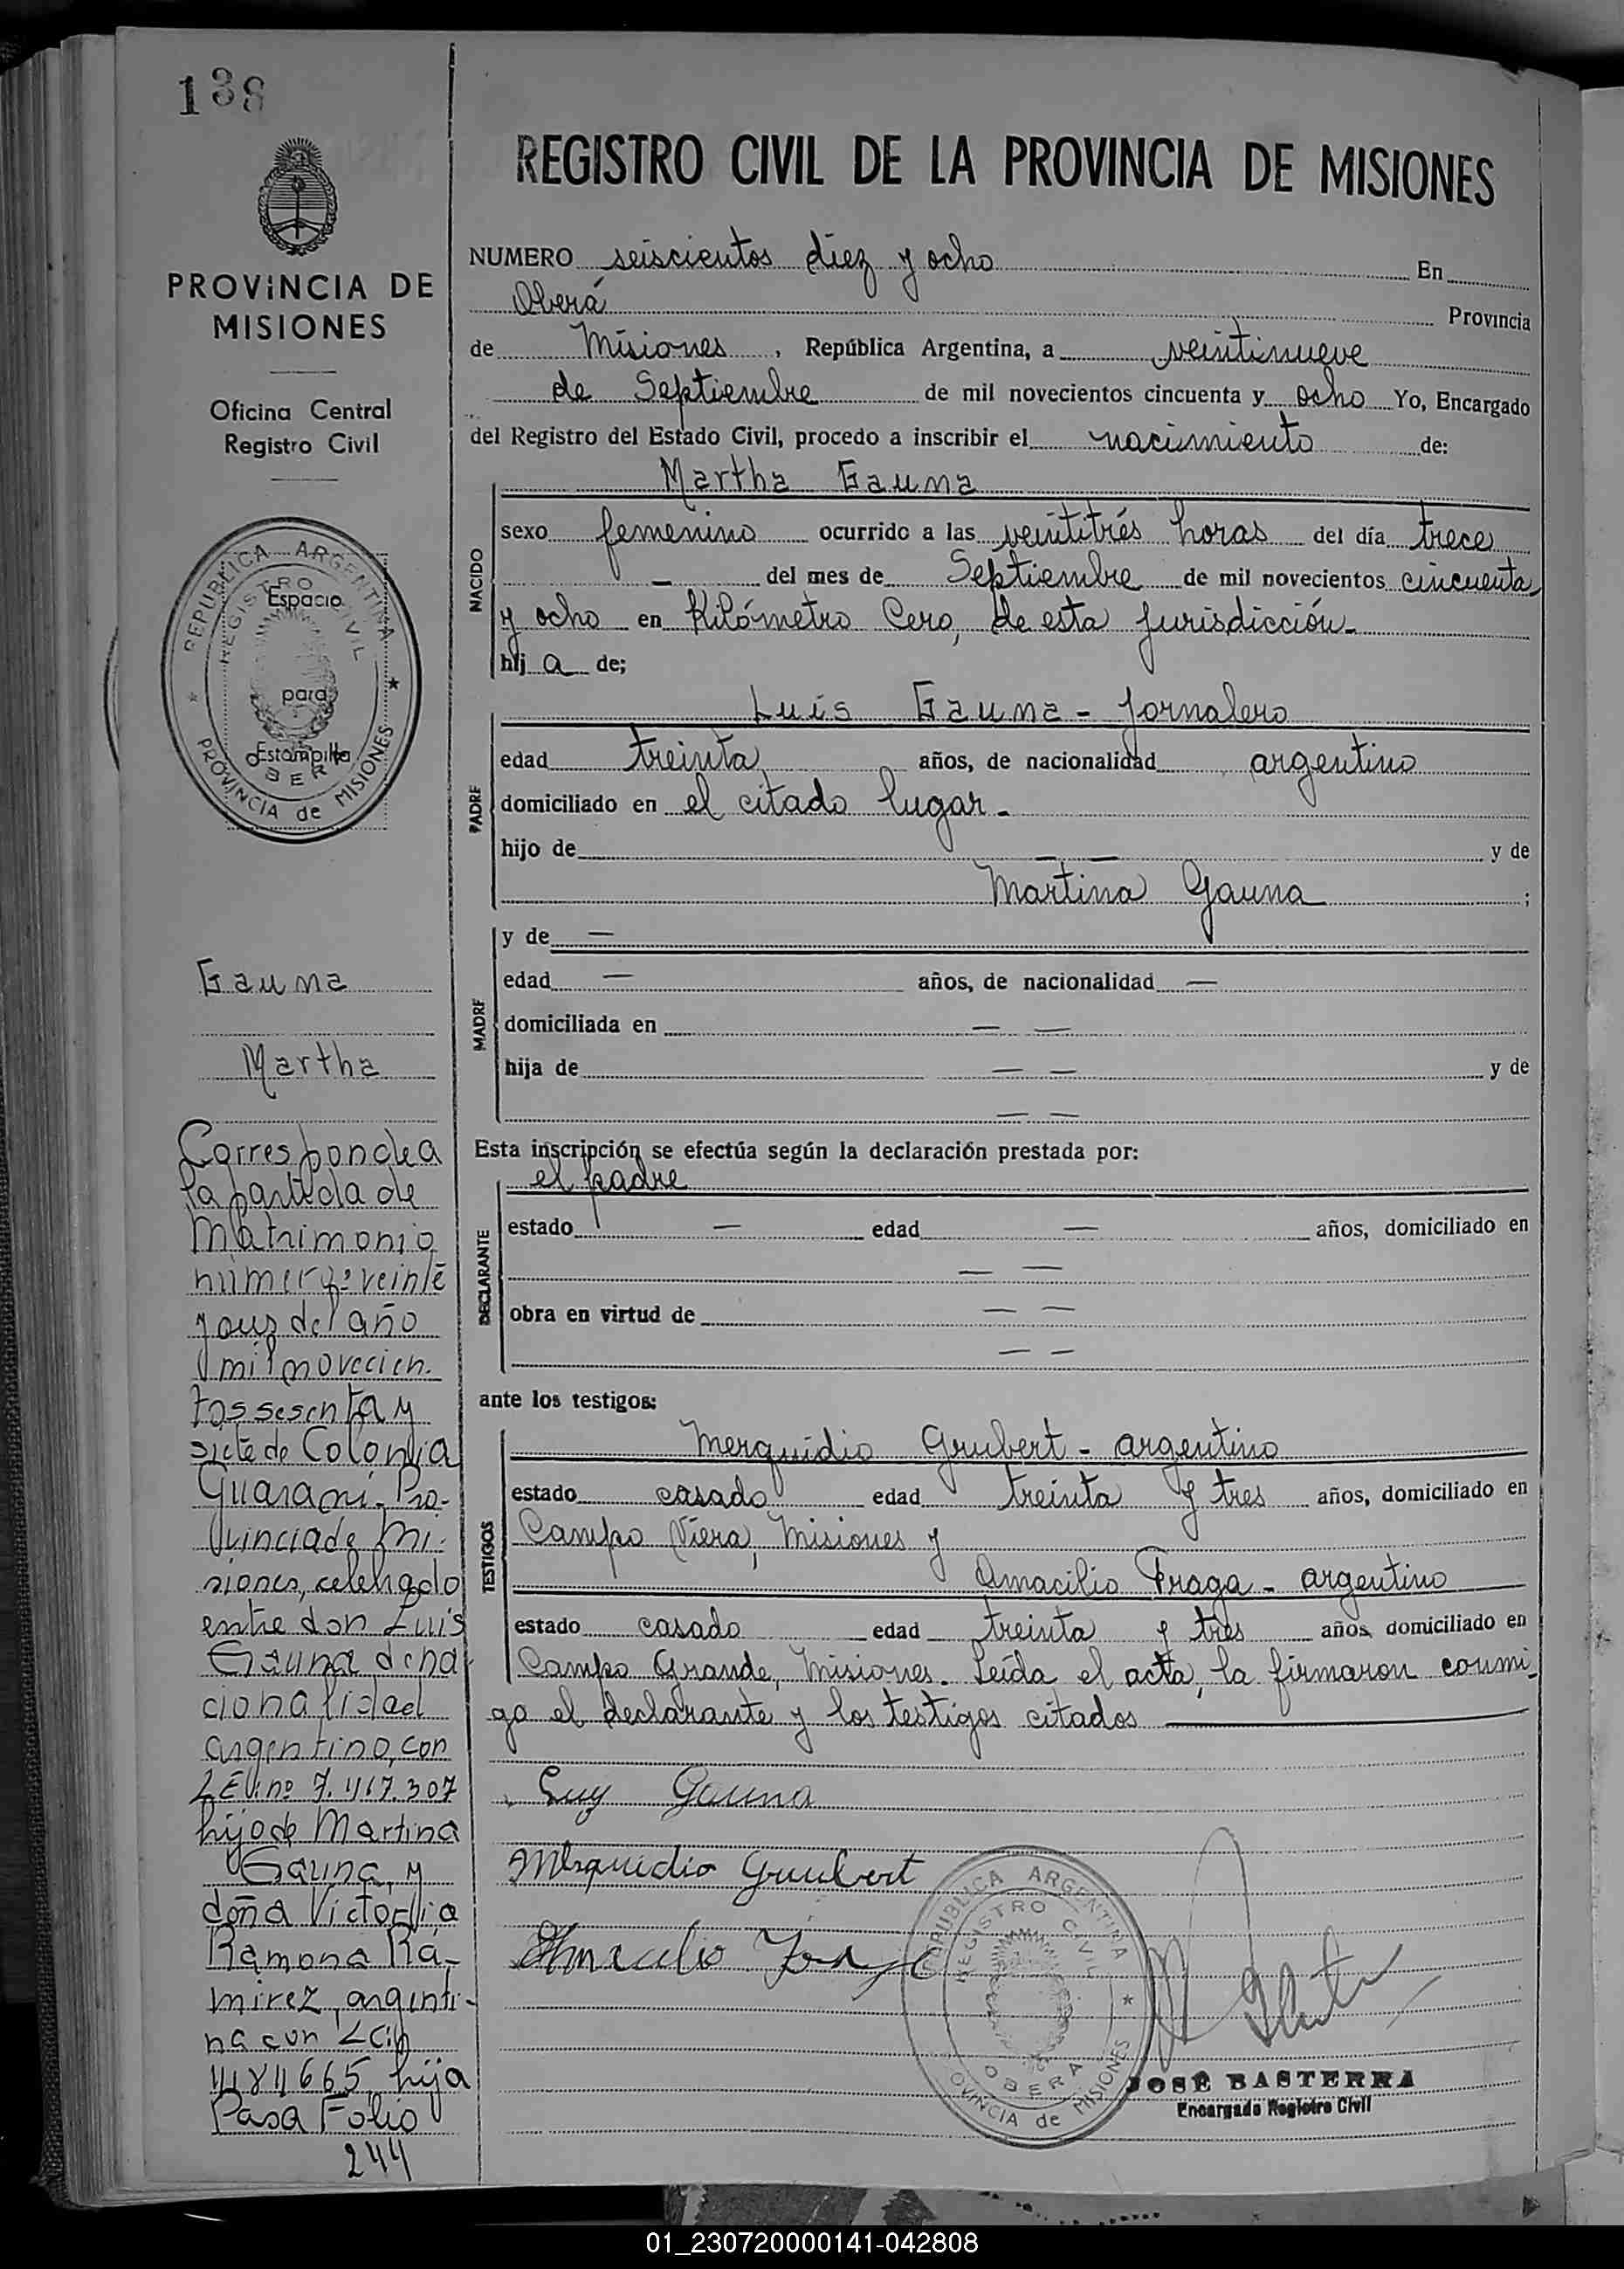 138
PROVINCIA DE
MISIONES
Oficina Central
Registro Civil
REPUBLICA ARGENTINA
REGISTRO CIVIL
Espacio
para
Estampilla
OBERA
PROVINCIA de MISIONES
Gauna
Martha
Corresponde a
la partida de
Matrimonio
número veinte
y del año
mil novecien-
tos sesenta y
siete de Colonia
Guaraní- Pro-
vincia de Mi-
siones, celebrado
entre don Luis
Gauna de na-
cionalidad
argentino, con
L.E. nº 7.417.307
hijo de Martina
Gauna, y
doña Victoria
Ramona Ra-
mirez, argenti-
na con
hija
Pasa Folio
244
REGISTRO CIVIL DE LA PROVINCIA DE MISIONES
NUMERO seiscientos diez y ocho En
Oberá Provincia
de Misiones, República Argentina, a veintinueve
de Septiembre de mil novecientos cincuenta y ocho Yo, Encargado
del Registro del Estado Civil, procedo a inscribir el nacimiento de:
Martha Gauna
NACIDO
sexo femenino ocurrido a las veintitrés horas del día trece
— del mes de Septiembre de mil novecientos cincuenta
y ocho en Kilómetro Cero, de esta jurisdicción.
hij a de;
PADRE
Luis Gauna - jornalero
edad treinta años, de nacionalidad argentino
domiciliado en el citado lugar.
hijo de — — y de
Martina Gauna ;
MADRE
y de —
edad — años, de nacionalidad —
domiciliada en — —
hija de — — y de
— —
Esta inscripción se efectúa según la declaración prestada por:
DECLARANTE
el padre
estado — edad — años, domiciliado en
— —
obra en virtud de — —
— —
ante los testigos:
TESTIGOS
Merquidio Grubert - argentino
estado casado edad treinta y tres años, domiciliado en
Campo Viera, Misiones y
Amacilio Fraga - argentino
estado casado edad treinta y tres años domiciliado en
Campo Grande, Misiones. Leída el acta, la firmaron conmi-
go el declarante y los testigos citados
Luy Gauna
Merquidio Grubert
REPUBLICA ARGENTINA
REGISTRO CIVIL
OBERA
PROVINCIA de MISIONES
JOSÉ BASTERRA
Encargado Registro Civil
01_230720000141-042808